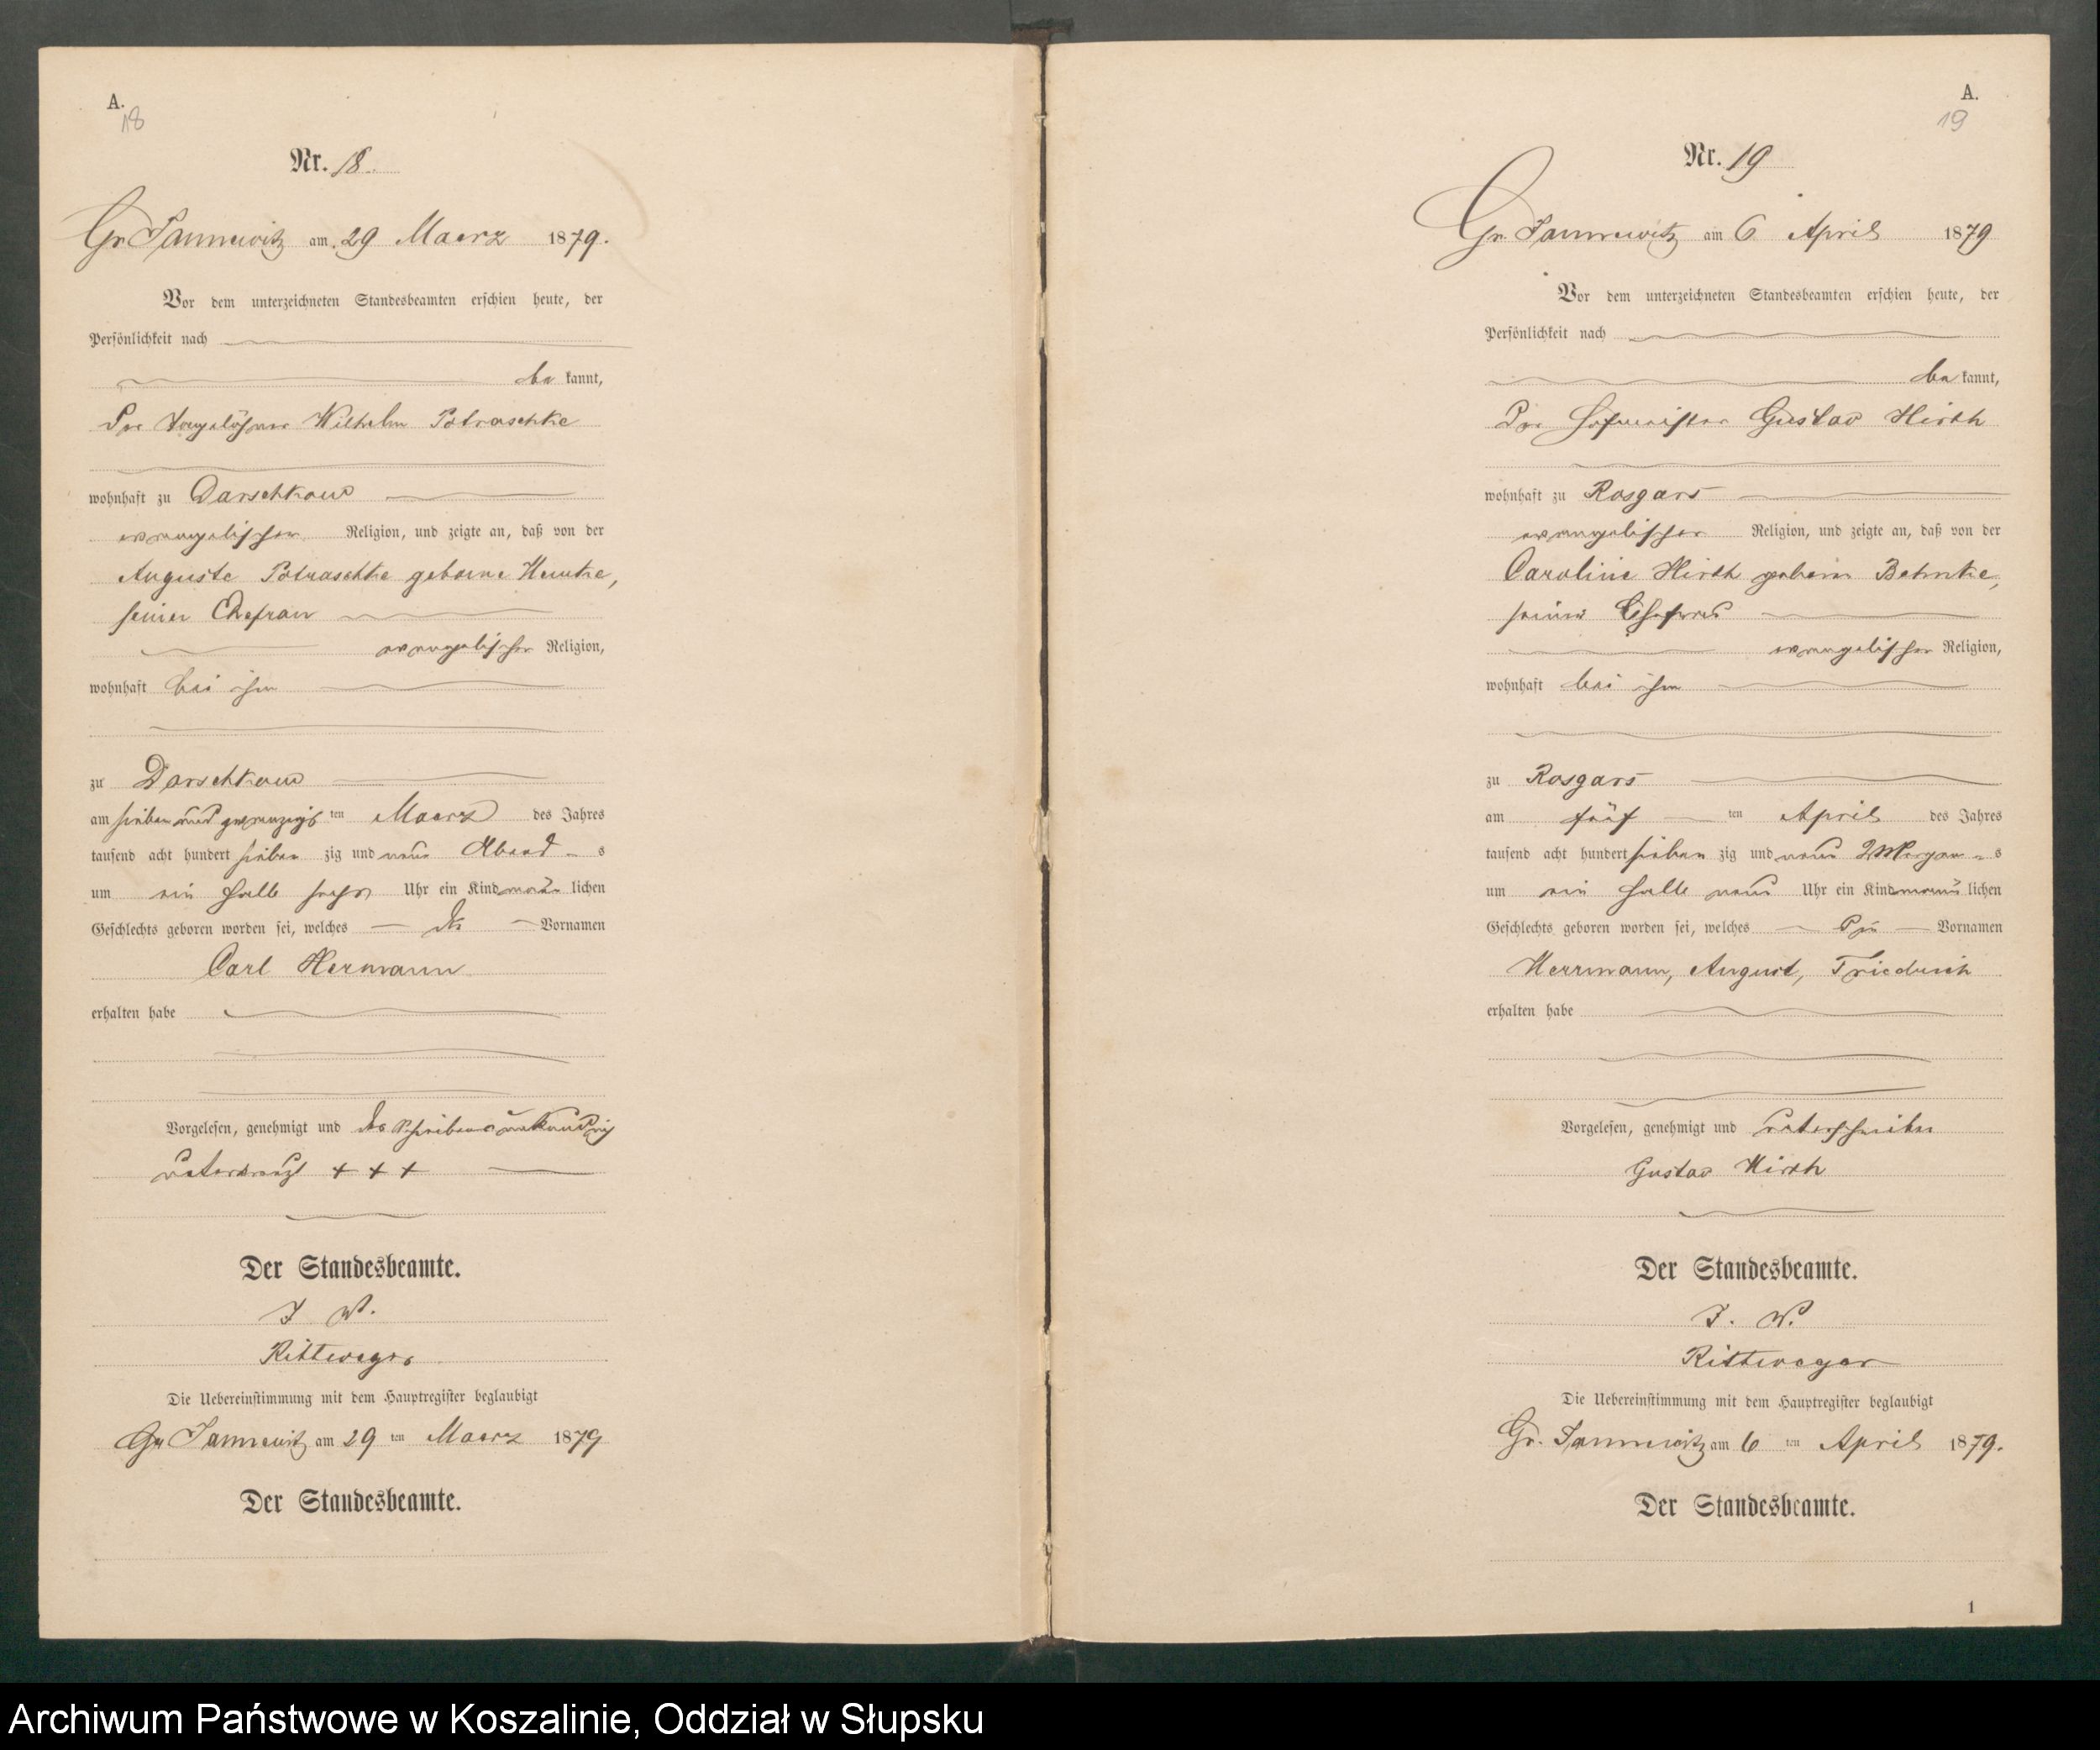 A.
18
Nr. 18.
Gr Jannewitz am 29 Maerz 1879.
Vor dem unterzeichneten Standesbeamten erschien heute, der
Persönlichkeit nach
be kannt,
Der Tagelöhner Wilhelm Potraschke
wohnhaft zu Darschkow
evangelischer Religion, und zeigte an, daß von der
Auguste Potraschke geborne
seiner Ehefrau
evangelischer Religion,
wohnhaft bei ihm
zu Darschkow
am sieben und zwanzigs ten Maerz des Jahres
tausend acht hundert sieben zig und neun Abend s
um ein halb sechs Uhr ein Kind männ lichen
Geschlechts geboren worden sei, welches die Vornamen
Carl Hermann
erhalten habe
Vorgelesen, genehmigt und
unterkreuzt + + +
Der Standesbeamte.
J V.
Rittweger
Die Uebereinstimmung mit dem Hauptregister beglaubigt
Gr Jannewitz am 29 ten Maerz 1879
Der Standesbeamte.
A.
19
Nr. 19
Gr. Jannewitz am 6 April 1879
Vor dem unterzeichneten Standesbeamten erschien heute, der
Persönlichkeit nach
be kannt,
Der Hofmeister Gustav Hirth
wohnhaft zu Rosgars
evangelischer Religion, und zeigte an, daß von der
Caroline Hirth geborne Behnke,
seine Ehefrau
evangelischer Religion,
wohnhaft bei ihm
zu Rosgars
am fünf ten April des Jahres
tausend acht hundert sieben zig und neun Morgen s
um ein halb neun Uhr ein Kind männ lichen
Geschlechts geboren worden sei, welches die Vornamen
Herrmann, August, Friedrich
erhalten habe
Vorgelesen, genehmigt und unterschrieben
Gustav Hirth
Der Standesbeamte.
J. V.
Rittweger
Die Uebereinstimmung mit dem Hauptregister beglaubigt
Gr. Jannewitz am 6 ten April 1879.
Der Standesbeamte.
1
Archiwum Państwowe w Koszalinie, Oddział w Słupsku